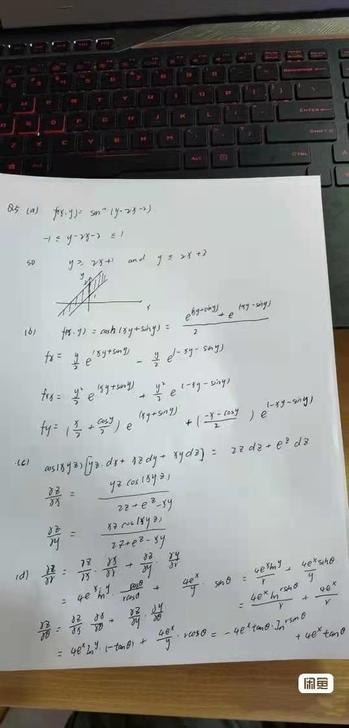 Q5 (a) f(x,y) = sin⁻¹(y-2x-2)
-1 ≤ y-2x-2 ≤ 1
so y ≥ 2x+1 and y ≤ 2x+3
y
x
(b) f(x,y) = cosh(xy+siny) = e^(xy+siny) + e^(-xy-siny) / 2
fx = y/2 e^(xy+siny) - y/2 e^(-xy-siny)
fxx = y²/2 e^(xy+siny) + y²/2 e^(-xy-siny)
fy = (x/2 + cosy/2) e^(xy+siny) + (-x-cosy/2) e^(-xy-siny)
(c) cos(xyz)[yz·dx + xzdy + xydz] = 2zdz + e^z dz
∂z/∂x = yz cos(xyz) / 2z+e^z-xy
∂z/∂y = xz cos(xyz) / 2z+e^z-xy
(d) ∂z/∂r = ∂z/∂x · ∂x/∂r + ∂z/∂y · ∂y/∂r
= 4e^x ln y · cosθ/rcosθ + 4e^x/y · sinθ = 4e^x ln y/r + 4e^x sinθ/y
= 4e^x ln rsinθ/r + 4e^x/r
∂z/∂θ = ∂z/∂x · ∂x/∂θ + ∂z/∂y · ∂y/∂θ
= 4e^x ln y (-tanθ) + 4e^x/y · rcosθ = -4e^x tanθ · ln rsinθ + 4e^x tanθ
闲鱼